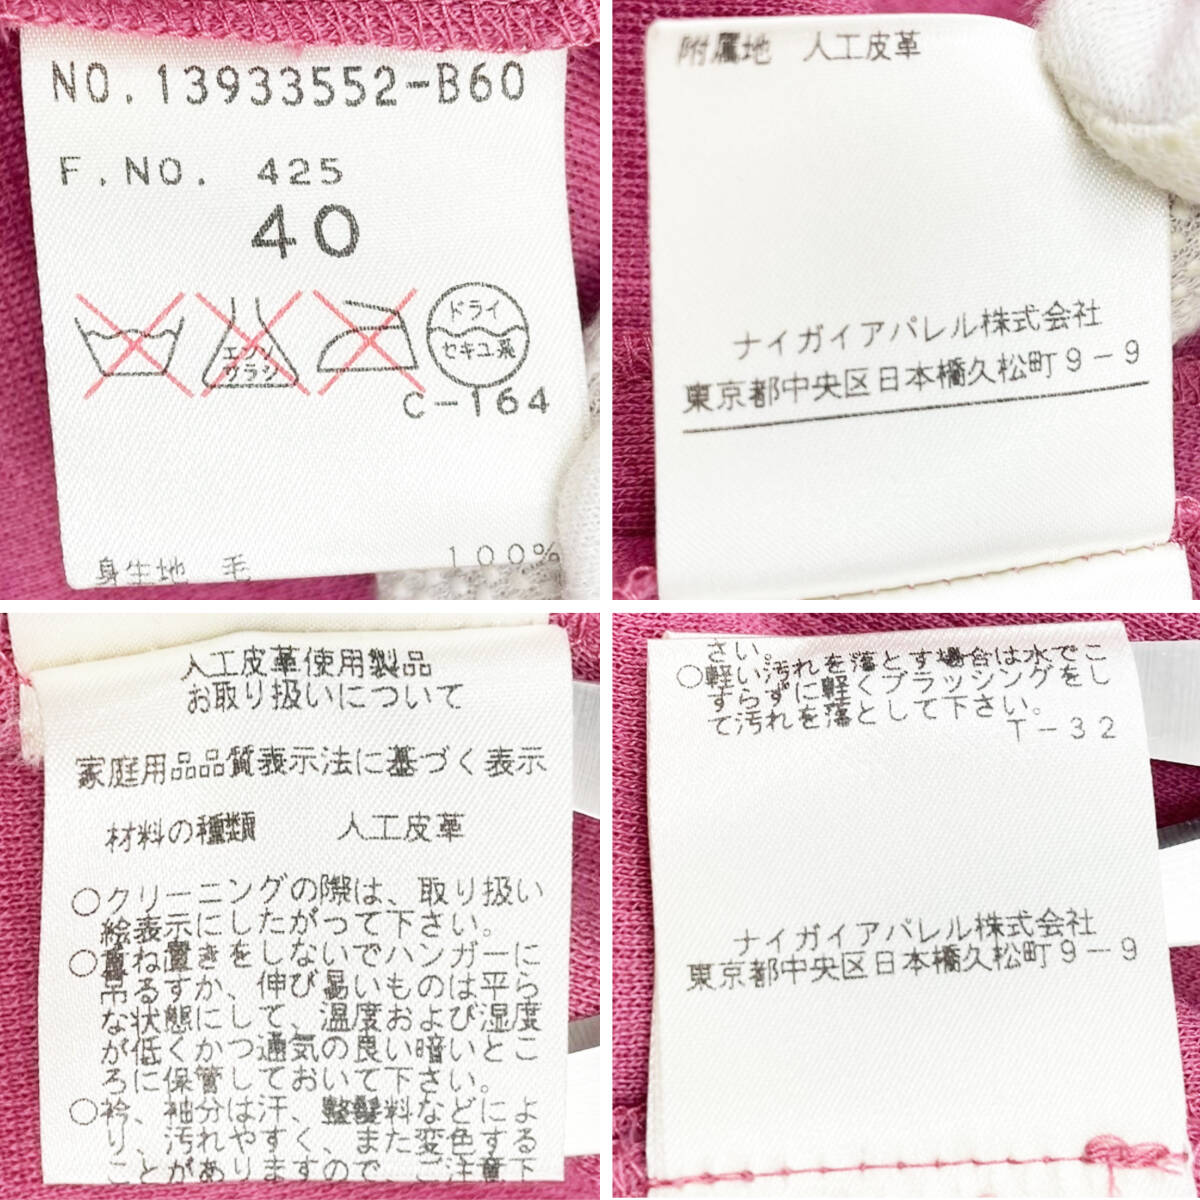 NO. 13933552-B60
F. NO. 425
40
エンソ
サラシ
ドライ
セキユ系
C-164
身生地 毛 100%
附属地 人工皮革
ナイガイアパレル株式会社
東京都中央区日本橋久松町9-9
人工皮革使用製品
お取り扱いについて
家庭用品品質表示法に基づく表示
材料の種類 人工皮革
○クリーニングの際は、取り扱い
絵表示にしたがって下さい。
○重ね置きをしないでハンガーに
吊るすか、伸び易いものは平ら
な状態にして、温度および湿度
が低くかつ通気の良い暗いとこ
ろに保管しておいて下さい。
○衿、袖分は汗、整髪料などによ
り、汚れやすく、また変色する
ことがありますので、ご注意下
さい。
○軽い汚れを落とす場合は水でこ
すらずに軽くブラッシングをし
て汚れを落として下さい。
T-32
ナイガイアパレル株式会社
東京都中央区日本橋久松町9-9